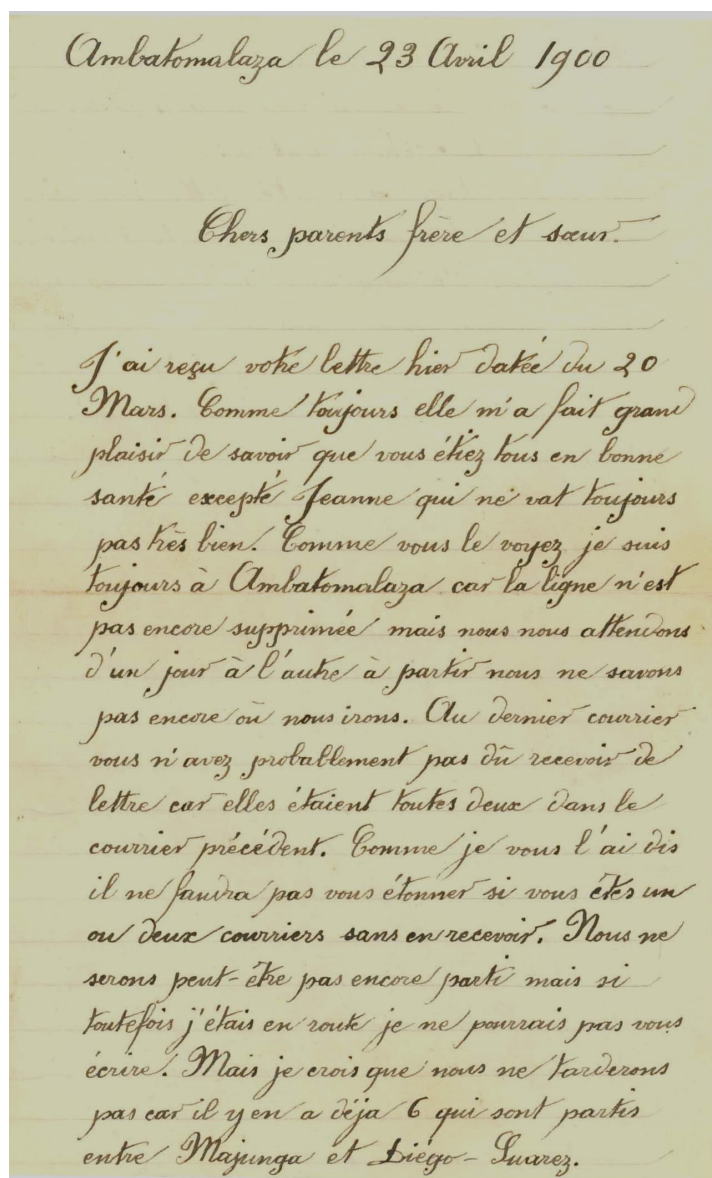 Ambatomalaza le 23 Avril 1900
Chers parents frère et sœur.
J'ai reçu votre lettre hier datée du 20
Mars. Comme toujours elle m'a fait grand
plaisir de savoir que vous étiez tous en bonne
santé excepté Jeanne qui ne vat toujours
pas très bien. Comme vous le voyez je suis
toujours à Ambatomalaza car la ligne n'est
pas encore supprimée mais nous nous attendons
d'un jour à l'autre à partir nous ne savons
pas encore où nous irons. Au dernier courrier
vous n'avez probablement pas dû recevoir de
lettre car elles étaient toutes deux dans le
courrier précédent. Comme je vous l'ai dis
il ne faudra pas vous étonner si vous êtes un
ou deux courriers sans en recevoir. Nous ne
serons peut-être pas encore parti mais si
toutefois j'étais en route je ne pourrais pas vous
écrire. Mais je crois que nous ne tarderons
pas car il y en a déja 6 qui sont partis
entre Majunga et Diégo-Suarez.